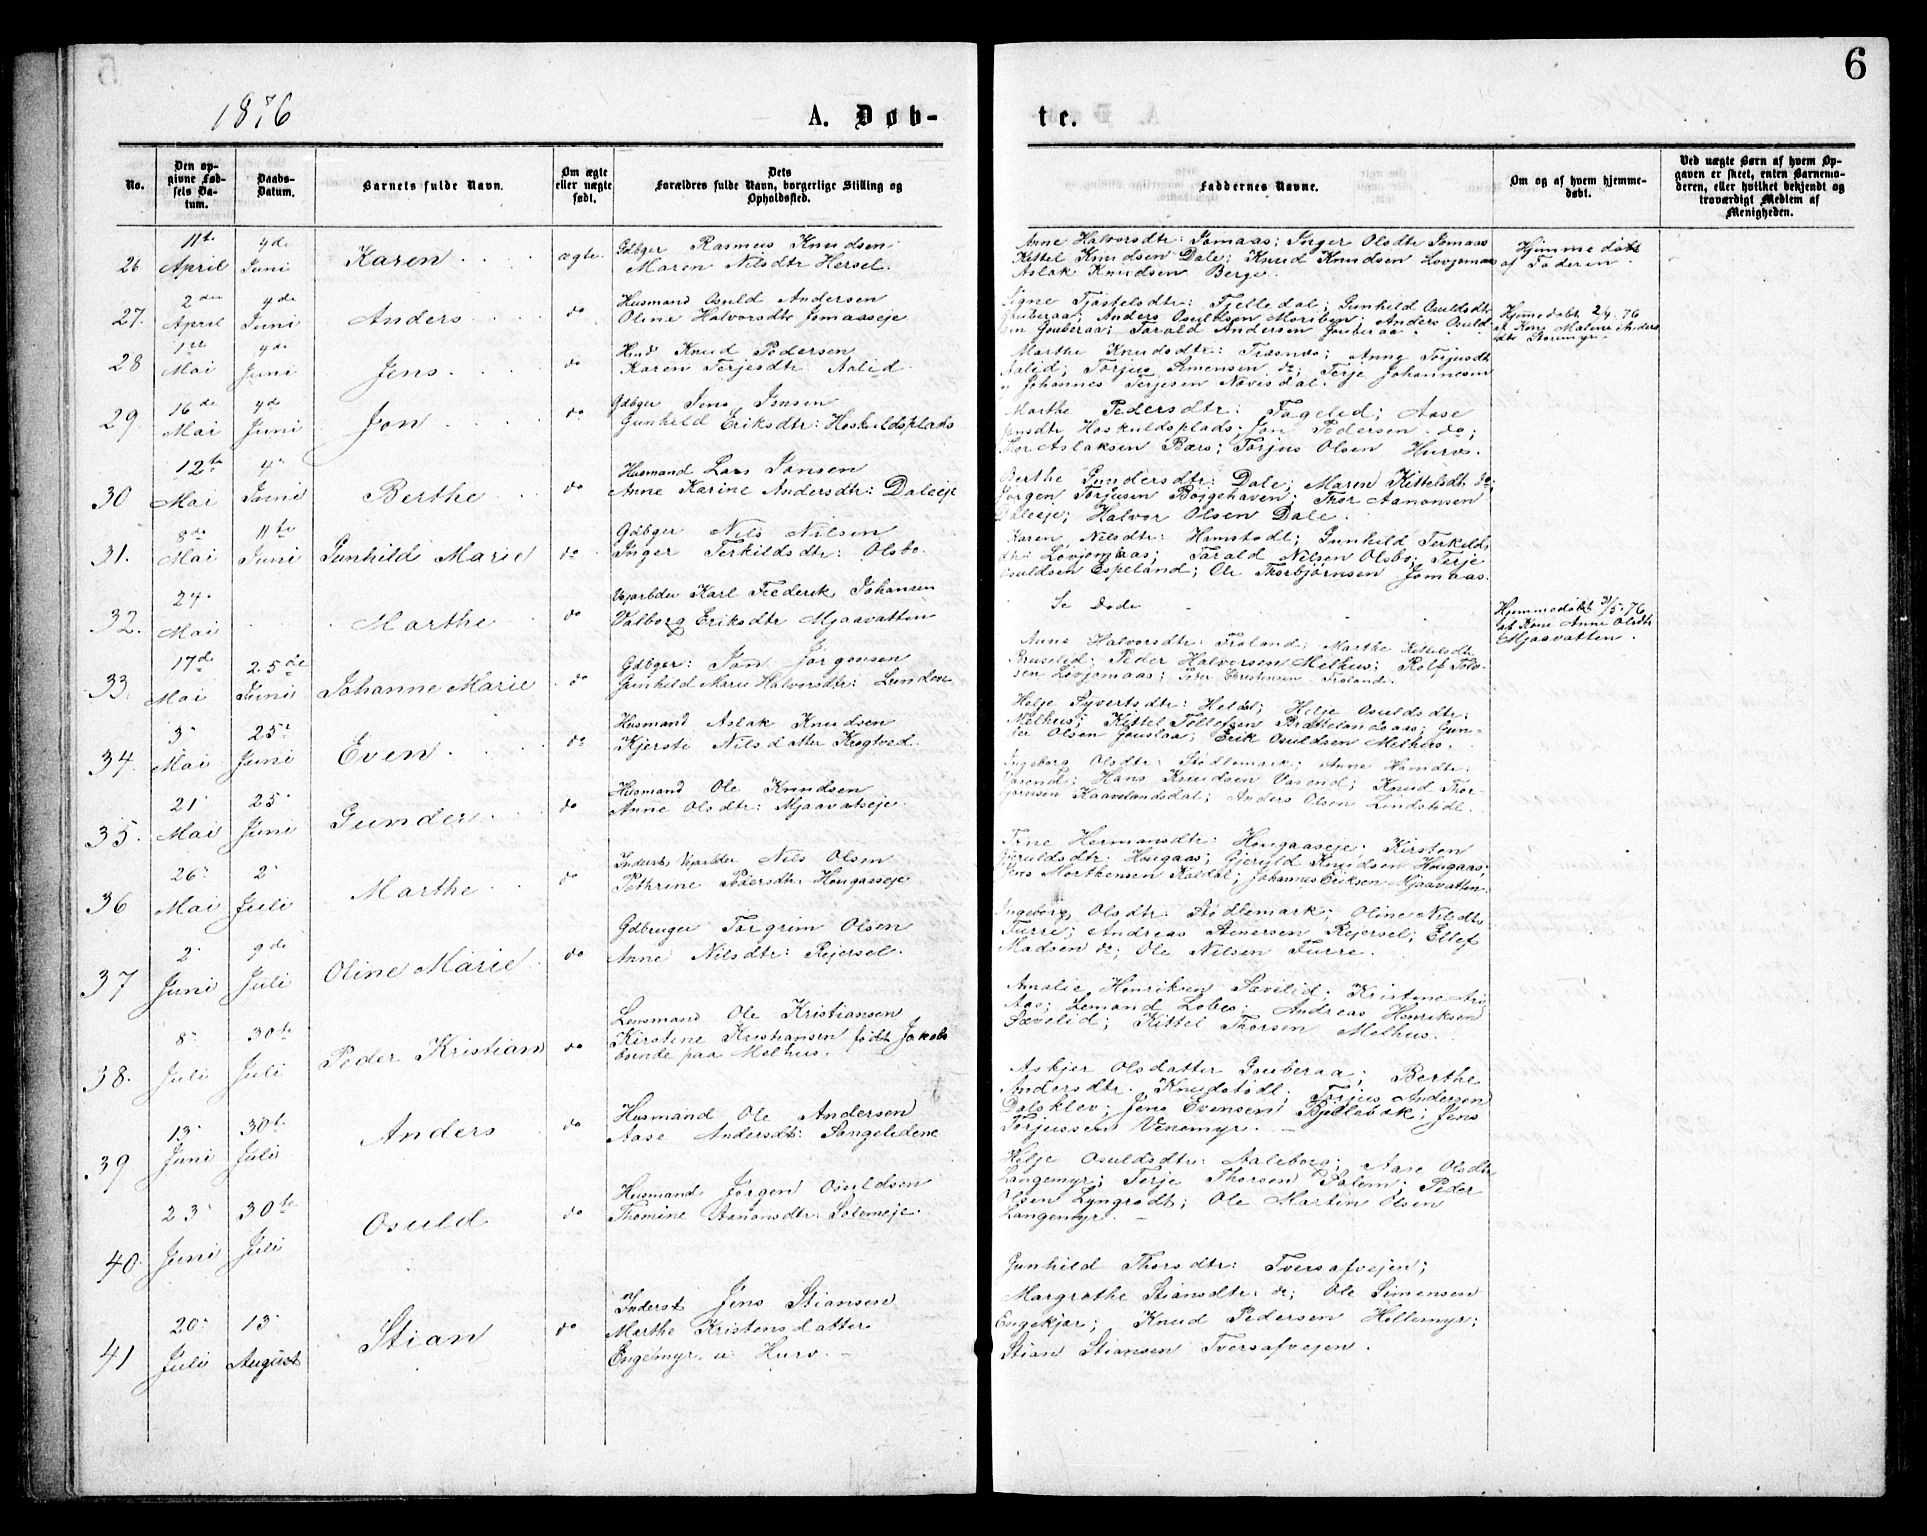 6
1876
A. Døb-
te.
No.
Den op-
givne Fød-
sels Da-
tum.
Daabs-
Datum.
Barnets fulde Navn.
Om ægte
eller uægte
født.
Dets
Forældres fulde Navn, borgerlige Stilling og
Opholdssted.
Faddernes Navne.
Om og af hvem hjemme-
døbt.
Ved uægte Børn af hvem Op-
gaven er skeet, enten Barnemo-
deren, eller hvilket bekjendt og
troværdigt Medlem af
Menigheden.
26 11te April 4de Juni Karen ægte.
Gdbger Rasmus Knudsen
Maren Nilsdtr Hersel.
Anne Halvorsdtr: Jomaas; Inger Olsdtr Jomaas
Kittel Knudsen Dale; Knud Knudsen Lovjomaas
Aslak Knudsen Berge.
Hjemmedøbt
af Faderen.
27. 2den April 4de Juni Anders do
Husmand Osuld Andersen
Oline Halvorsdtr Jomaaseje
Signe Tjøstelsdtr: Fjelledal; Gunhild Osuldsdtr
Gouberaa; Anders Osuldsen Moriben; Anders Osuld
sen Gouberaa; Tarald Andersen Gouberaa.
Hjemmedøbt 2/4. 76
af Kone Malene Anders
dtr Stormyr.
28 1ste Mai 4de Juni Jens do
Hmd Knud Pedersen
Karen Terjesdtr Aalid.
Marthe Knudsdtr: Træsnæs; Anne Torjusdtr
Aalid; Torjus Simensen do; Terje Johannesen
" Johannes Terjesen Nævisdal.
29. 16de Mai 4de Juni Jon do
Gdbger Jens Jensen
Gunhild Eriksdtr: Høskuldsplads
Marthe Pedersdtr: Fageled; Aase
Jensdtr Høskuldsplads; Jon Pedersen do;
Thor Aslaksen Bærs; Torjus Olsen Hurv.
30 12te Mai 4 Juni Berthe do
Husmand Lars Jansen
Anne Karine Andersdtr: Daleeje
Berthe Gundersdtr: Dale; Maren Kittelsdtr do;
Jørgen Torjusen Bøjgehaven; Thor Aanonsen
Daleeje; Halvor Olsen Dale.
31. 8de Mai 11te Juni Gunhild Marie do
Gdbger Nils Nilsen
Inger Terkildsdtr: Olsbo.
Karen Nilsdtr: Hamstødt; Gunhild Terkilds
dtr: Lovjomaas; Tarald Nilsen Olsbo; Terje
Osuldsen Espeland; Ole Thorbjørnsen Jomaas.
32. 24. Mai Marthe do
Vejarbder Karl Frederik Johansen
Valborg Eriksdtr Mjaavatten
Se Døde
Hjemmedøbt 31/5. 76
af Kone Anne Olsdtr
Mjaavatten.
33. 17de Mai 25de Juni Johanne Marie do
Gdbger: Jon Jørgensen
Gunhild Marie Halvorsdtr: Lunden
Anne Halvorsdtr: Froland; Marthe Kittelsdtr
Bruselid; Peder Halvorsen Melhus; Rolf Tols-
sen Lovjomaas; Peter Christensen Froland.
34. 3 Mai 25de Juni Even do
Husmand Aslak Knudsen
Kjersti Nilsdatter Krogtved.
Helje Syvertsdtr: Heldal; Helje Osuldsdtr:
Melhus; Kittel Tellefsen Brattelandsaas; Gun-
der Olsen Gouslaa; Erik Osuldsen Melhus.
35. 21 Mai 25 Juni Gunder do
Husmand Ole Knudsen
Anne Olsdtr: Mjaavatseje
Ingeborg Olsdtr: Stødlemark; Anne Hansdtr:
Vasend; Hans Knudsen Vasend; Knud Thor
bjørnsen Kaavelandsdal; Anders Olsen Lindstødl.
36 26 Mai 2 Juli Marthe do
Inderst Vejarbder Nils Olsen
Pethrine Pedersdtr: Hougaaseje
Tone Hermansdtr: Hougaaseje; Kirsten
Gjeruldsdtr: Hougaas; Gjeruld Knudsen Hougaas;
Jens Morthensen Kaldal; Johannes Eriksen Mjaavatten.
37 2 Juni 9de Juli Oline Marie do
Gdbruger Torgrim Olsen
Anne Nilsdtr: Rejersel.
Ingeborg Olsdtr: Stødlemark; Oline Nilsdtr
Furre; Andreas Stenersen Rejersel; Ellef
Madsen do; Ole Nilsen Furre.
38. 8 Juli 30te Juli Peder Kristian do
Lensmand Ole Kristiansen
Kirstine Kristiansen født Jakobs
boende paa Melhus.
Amalie Henriksen Sævelid; Kristine
Aas; Lemand Lobes; Andreas Henriksen
Sævelid; Kittel Thorsen Melhus.
39 13 Juni 30te Juli Anders do
Husmand Ole Andersen
Aase Andersdtr: Sangeledene
Asbjer Olsdatter Gouberaa; Berthe
Andersdtr. Knudstødl; Torjus Andersen
Dalsklev; Jens Evensen Bjellabæk; Jens
Torjussen Venemyr.
40. 23 Juni 30te Juli Osuld do
Husmand Jørgen Osuldsen
Thomine Aanonsdtr: Salemeje.
Helje Osuldsdtr: Aaleborg; Aase Olsdtr
Langemyr; Terje Thorsen Salem; Peder
Olsen Lyngrødt; Ole Martin Olsen
Langemyr.
41 20 Juli 13 August Stian do
Inderst Jens Stiansen
Marthe Kristensdatter
Engemyr u. Hurv.
Gunhild Thorsdtr: Tversafvejen;
Margrethe Stiansdtr: do; Ole Simensen
Engekjær; Knud Pedersen Hellemyr;
Stian Stiansen Tversafvejen.